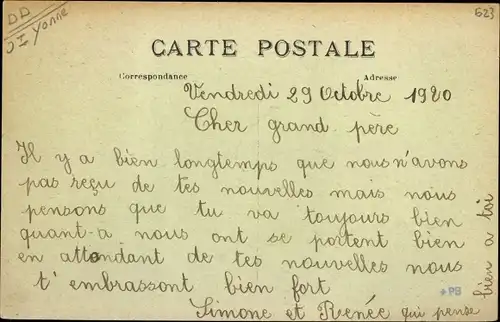 DD
DI Yonne
623
CARTE POSTALE
Correspondance Adresse
Vendredi 29 Octobre 1920
Cher grand père
Il y a bien longtemps que nous n'avons
pas reçu de tes nouvelles mais nous
pensons que tu va toujours bien
quant-a nous ont se portent bien
en attendant de tes nouvelles nous
t'embrassont bien fort
Simone et Renée qui pense
bien a toi
*P9